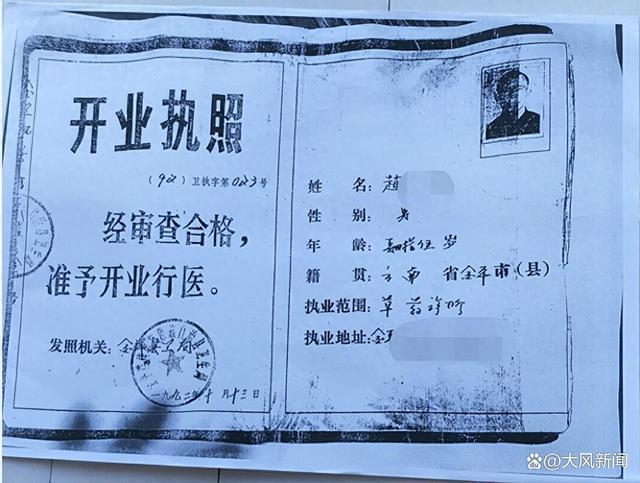 开业执照
(92)卫执字第023号
经审查合格，
准予开业行医。
发照机关：金
一九九二年十月十三日
姓名：赵
性别：男
年龄：岁
籍贯：云南省金平市(县)
执业范围：草药诊所
执业地址：金
@大风新闻